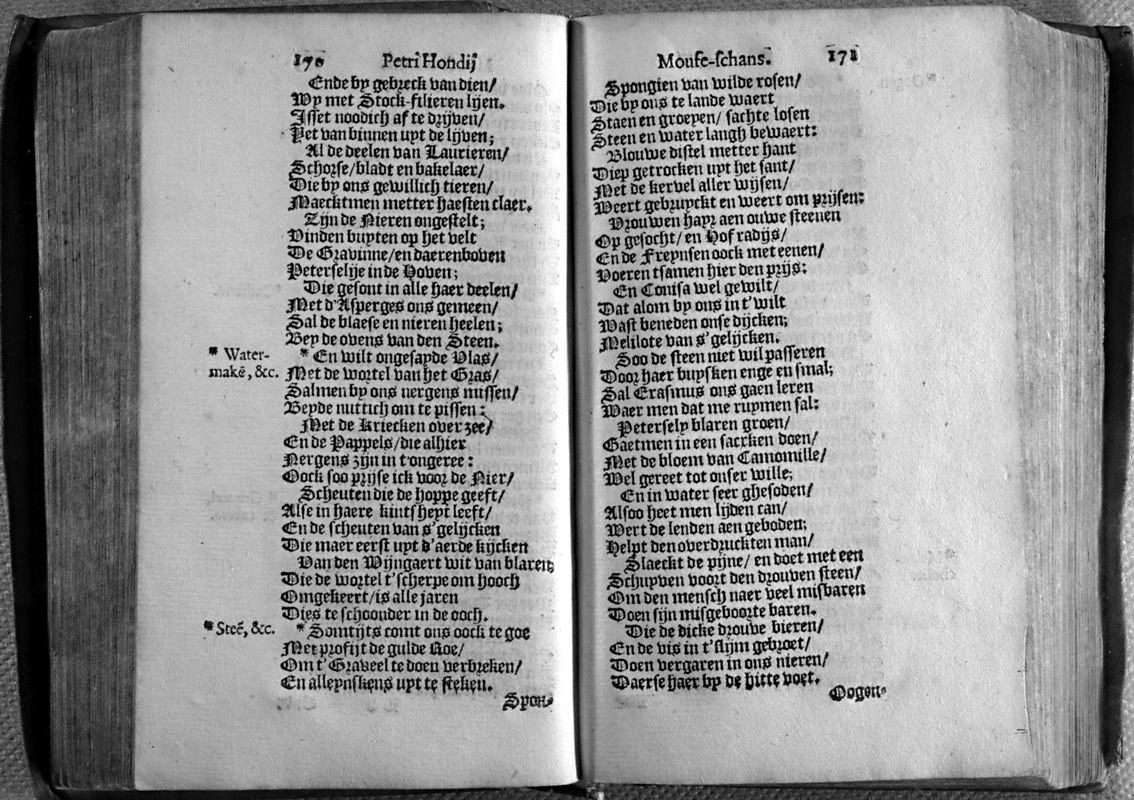 170 Petri Hondij
Ende by gebreck van dien/
Wy met Stock-filieren lijen.
Isset noodich af te drijven/
Yet van binnen uyt de lijven;
Al de deelen van Laurieren/
Schorse/bladt en bakelaer/
Die by ons gewillich tieren/
Maecktmen metter haesten claer.
Zijn de Nieren ongestelt;
Vinden buyten op het velt
De Gravinne/en daerenboven
Peterselije in de Hoven;
Die gesont in alle haer deelen/
Met d'Asperges ons gemeen/
Sal de blaese en nieren heelen;
Bey de ovens van den Steen.
* Water-
makē, &c.
* En wilt ongesayde Vlas/
Met de wortel van het Gras/
Salmen by ons nergens missen/
Beyde nuttich om te pissen:
Met de Kriecken over zee/
En de Pappels/die alhier
Nergens zijn in t'ongeree:
Oock soo prijse ick voor de Nier/
Scheuten die de hoppe geeft/
Alse in haere kintsheyt leeft/
En de scheuten van s'gelijcken
Die maer eerst uyt d'aerde kijcken
Van den Wijngaert wit van blaren;
Die de wortel t'scherpe om hooch
Omgekeert/is alle jaren
Dies te schoonder in de ooch.
* Steē, &c.
* Somtijts comt ons oock te goe
Met profijt de gulde Roe/
Om t'Graveel te doen verbreken/
En alleynskens uyt te steken.
Spon-
Mouse-schans. 171
Spongien van wilde rosen/
Die by ons te lande waert
Staen en groeyen/ sachte losen
Steen en water langh bewaert:
Blouwe distel metter hant
Diep getrocken uyt het sant/
Met de kervel aller wijsen/
Weert gebruyckt en weert om prijsen:
Vrouwen hayr aen ouwe steenen
Op gesocht/ en Hof radijs/
En de Freynsen oock met eenen/
Voeren tsamen hier den prijs:
En Conisa wel gewilt/
Dat alom by ons in t'wilt
Wast beneden onse dijcken;
Melilote van s'gelijcken.
Soo de steen niet wil passeren
Door haer buysken enge en smal;
Sal Erasmus ons gaen leren
Waer men dat me ruymen sal:
Petersely blaren groen/
Gaetmen in een sacxken doen/
Met de bloem van Camomille/
Wel gereet tot onser wille;
En in water seer ghesoden/
Alsoo heet men lijden can/
Wert de lenden aen geboden;
Helpt den overdruckten man/
Slaeckt de pijne/ en doet met een
Schuyven voort den drouven steen/
Om den mensch naer veel misbaren
Doen sijn misgeboorte baren.
Die de dicke drouve bieren/
En de vis in t'slijm gebroet/
Doen vergaren in ons nieren/
Daerse haer by de hitte voet.
Oogen-